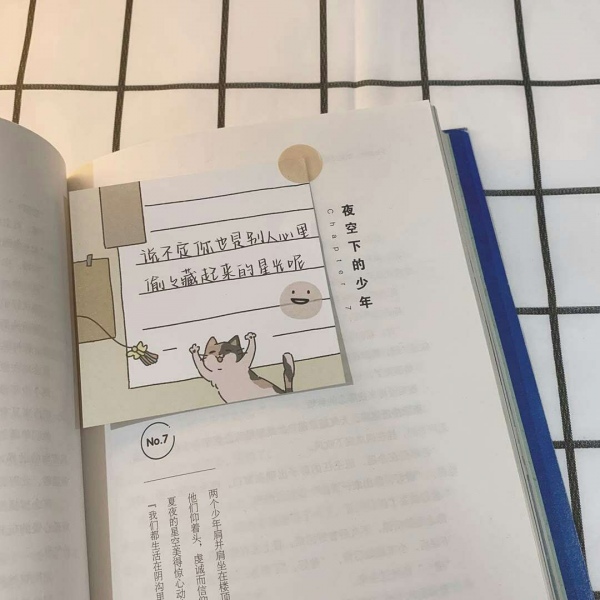 说不定你也是别人心里
偷偷藏起来的星光呢
夜空下的少年
Chapter 7
No.7
两个少年肩并肩坐在楼顶
他们仰着头,虔诚而信仰
夏夜的星空美得惊心动
「我们都生活在阴沟里